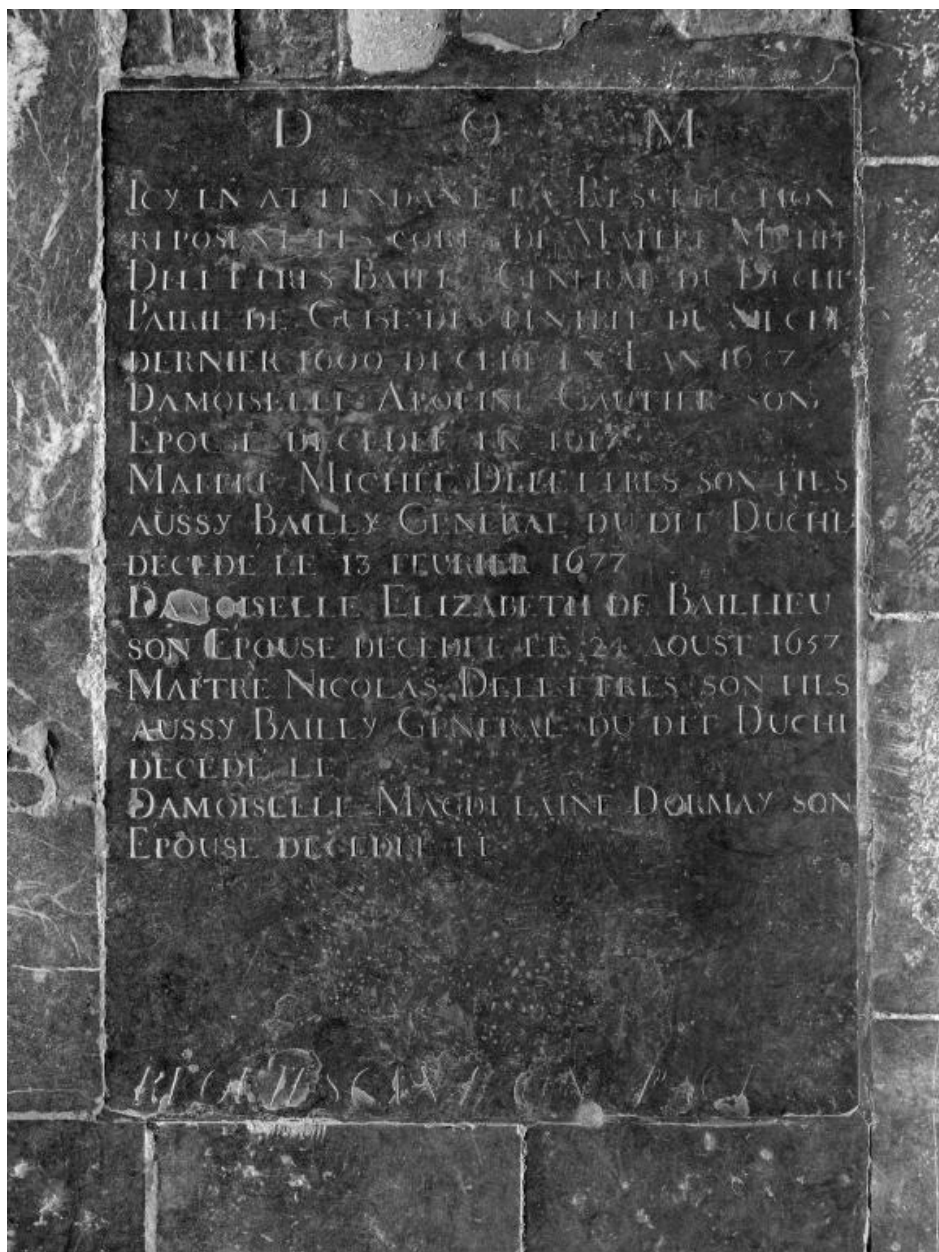 D O M
ICY EN ATTENDANT LA RESURECTION
REPOSENT LES CORPS DE MAITRE MICHEL
DELETTRES BAILLY GENERAL DU DUCHE
PAIRIE DE GUISE DES L'ENTREE DU SIECLE
DERNIER 1600 DECEDE EN L'AN
DAMOISELLE APOLINE GAUTIER SON
EPOUSE DECEDEE EN
MAITRE MICHEL DELETTRES SON FILS
AUSSY BAILLY GENERAL DU DIT DUCHE
DECEDE LE 13 FEURIER 1677
DAMOISELLE ELIZABETH DE BAILLIEU
SON EPOUSE DECEDEE LE 24 AOUST 1657
MAITRE NICOLAS DELETTRES SON FILS
AUSSY BAILLY GENERAL DU DIT DUCHE
DECEDE LE
DAMOISELLE MAGDELAINE DORMAY SON
EPOUSE DECEDEE LE